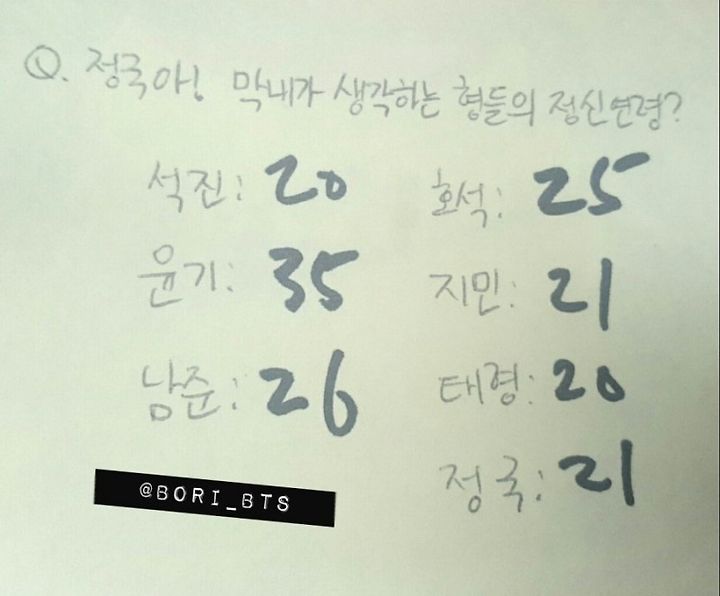 Q. 정국아! 막내가 생각하는 형들의 정신연령?
석진: 20
호석: 25
윤기: 35
지민: 21
남준: 26
태형: 20
정국: 21
@BORI_BTS